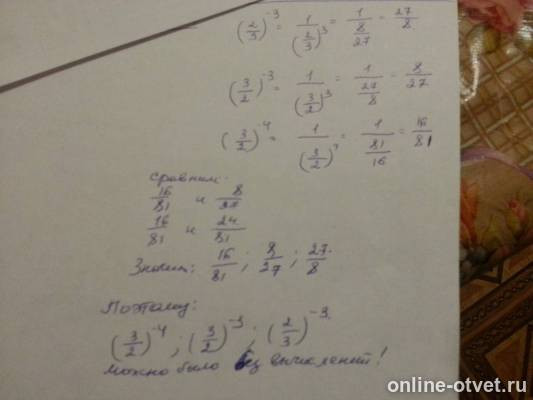 (2/3)^-3 = 1/(2/3)^3 = 1/(8/27) = 27/8
(3/2)^-3 = 1/(3/2)^3 = 1/(27/8) = 8/27
(3/2)^-4 = 1/(3/2)^4 = 1/(81/16) = 16/81
Сравним:
16/81 и 8/27
16/81 и 24/81
Значит: 16/81 ; 8/27 ; 27/8.
Поэтому:
(3/2)^-4 ; (3/2)^-3 ; (2/3)^-3.
можно было без вычислений!
online-otvet.ru